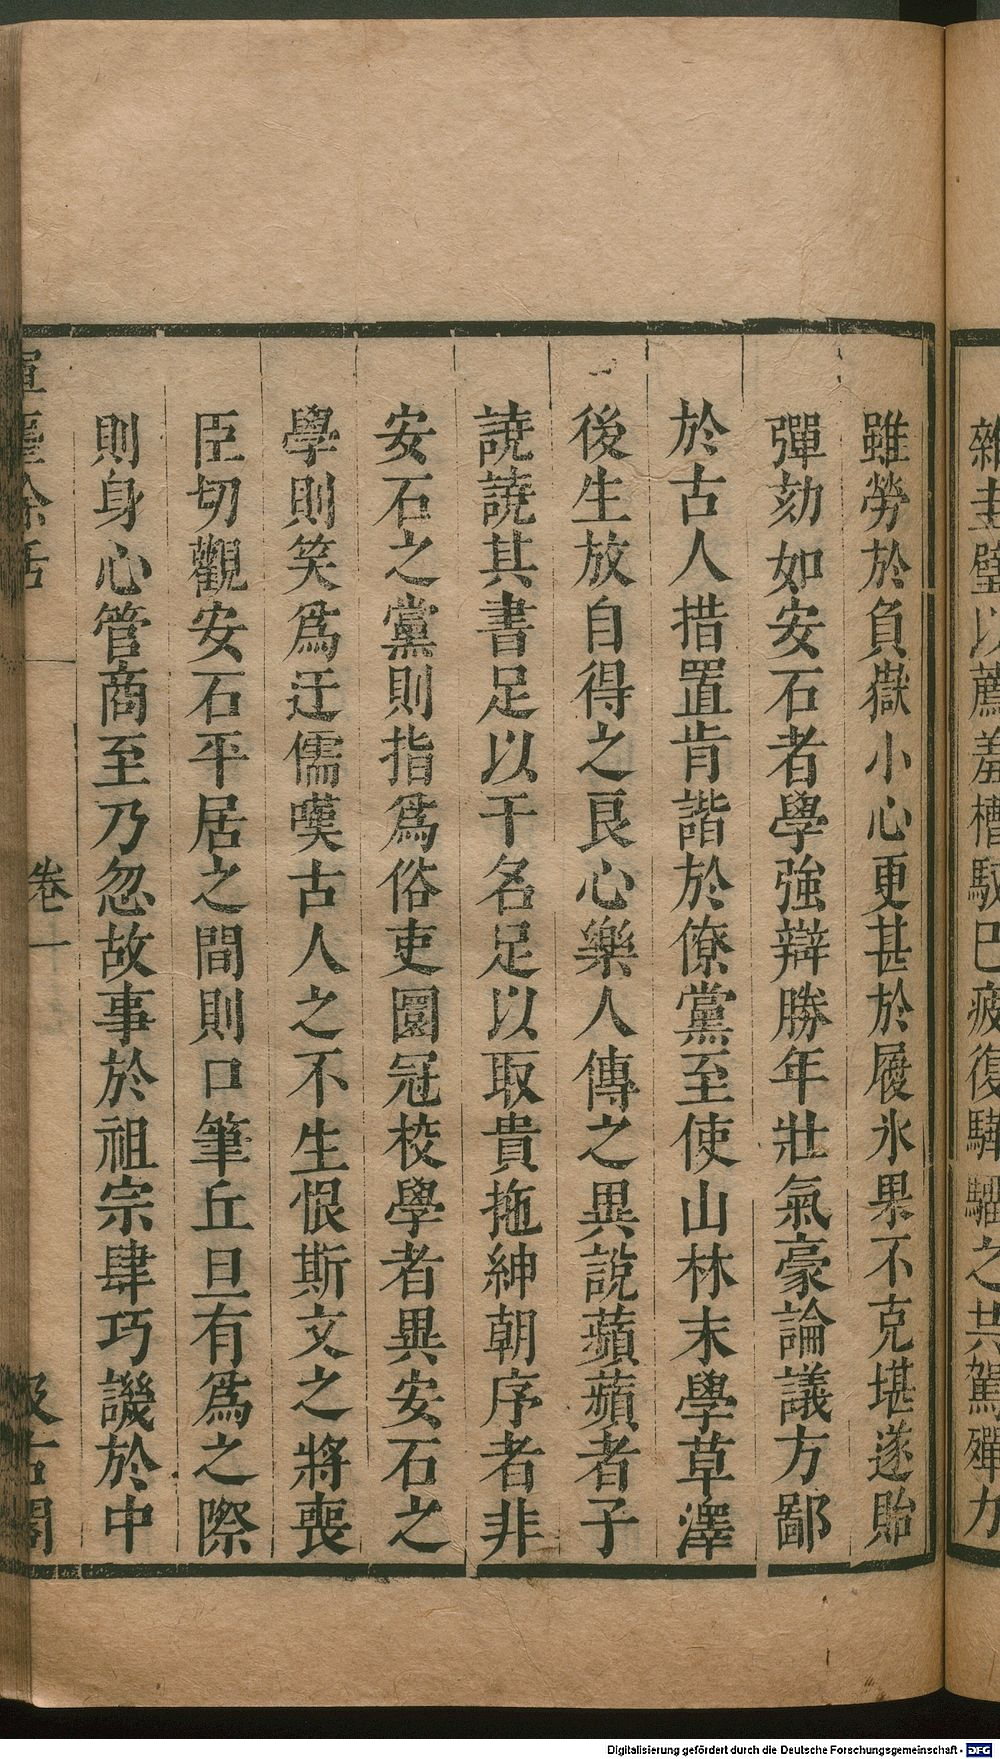 雜圭璧以薦羞槽馭巴疲復驊騮之共駕殫力
雖勞於負嶽小心更甚於履氷果不克堪遂貽
彈劾如安石者學強辯勝年壯氣豪論議方鄙
於古人措置肯諧於僚黨至使山林末學草澤
後生放自得之良心樂人傳之異說蘋蘋者子
譊譊其書足以干名足以取貴拖紳朝序者非
安石之黨則指爲俗吏圜冠校學者異安石之
學則笑爲迂儒嘆古人之不生恨斯文之將喪
臣切觀安石平居之間則口筆丘旦有爲之際
則身心管商至乃忽故事於祖宗肆巧譏於中
揮麈餘話 卷一 汲古閣
Digitalisierung gefördert durch die Deutsche Forschungsgemeinschaft - DFG